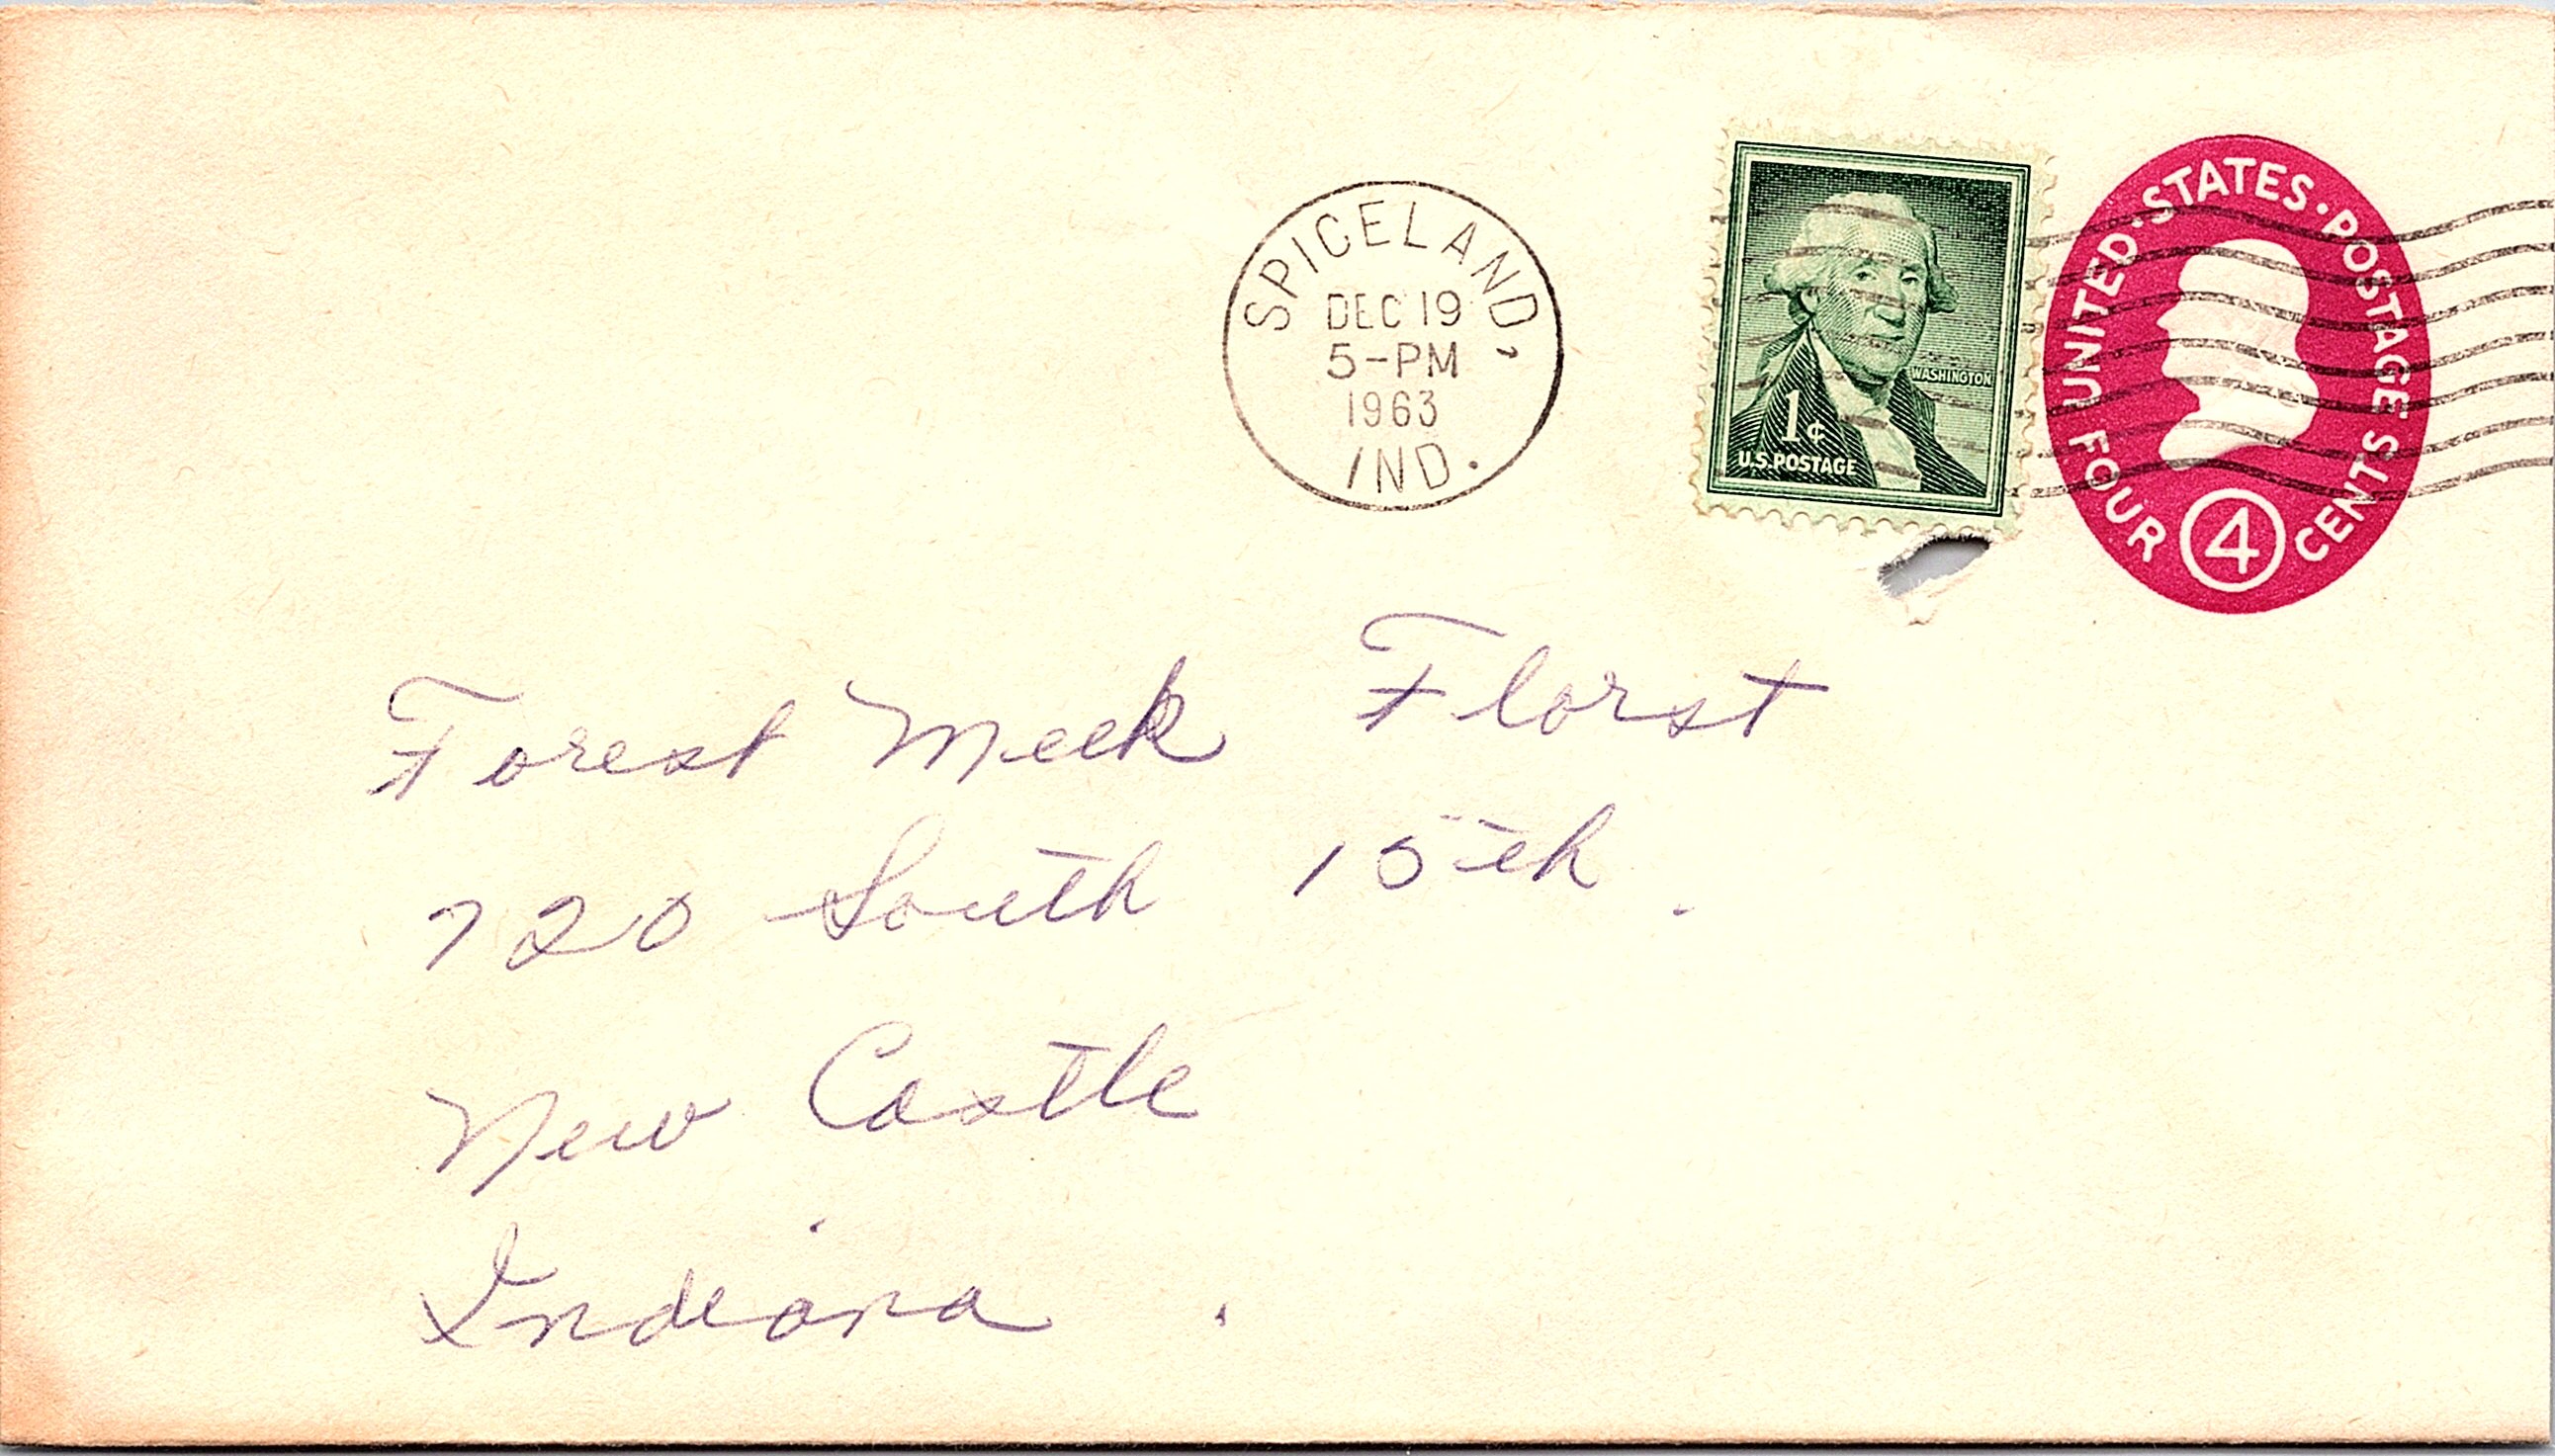 SPICELAND,
DEC 19
5-PM
1963
IND.
WASHINGTON
1¢
U.S.POSTAGE
UNITED·STATES·POSTAGE
FOUR 4 CENTS
Forest Meek Florst
720 South 15th.
New Castle
Indiana.